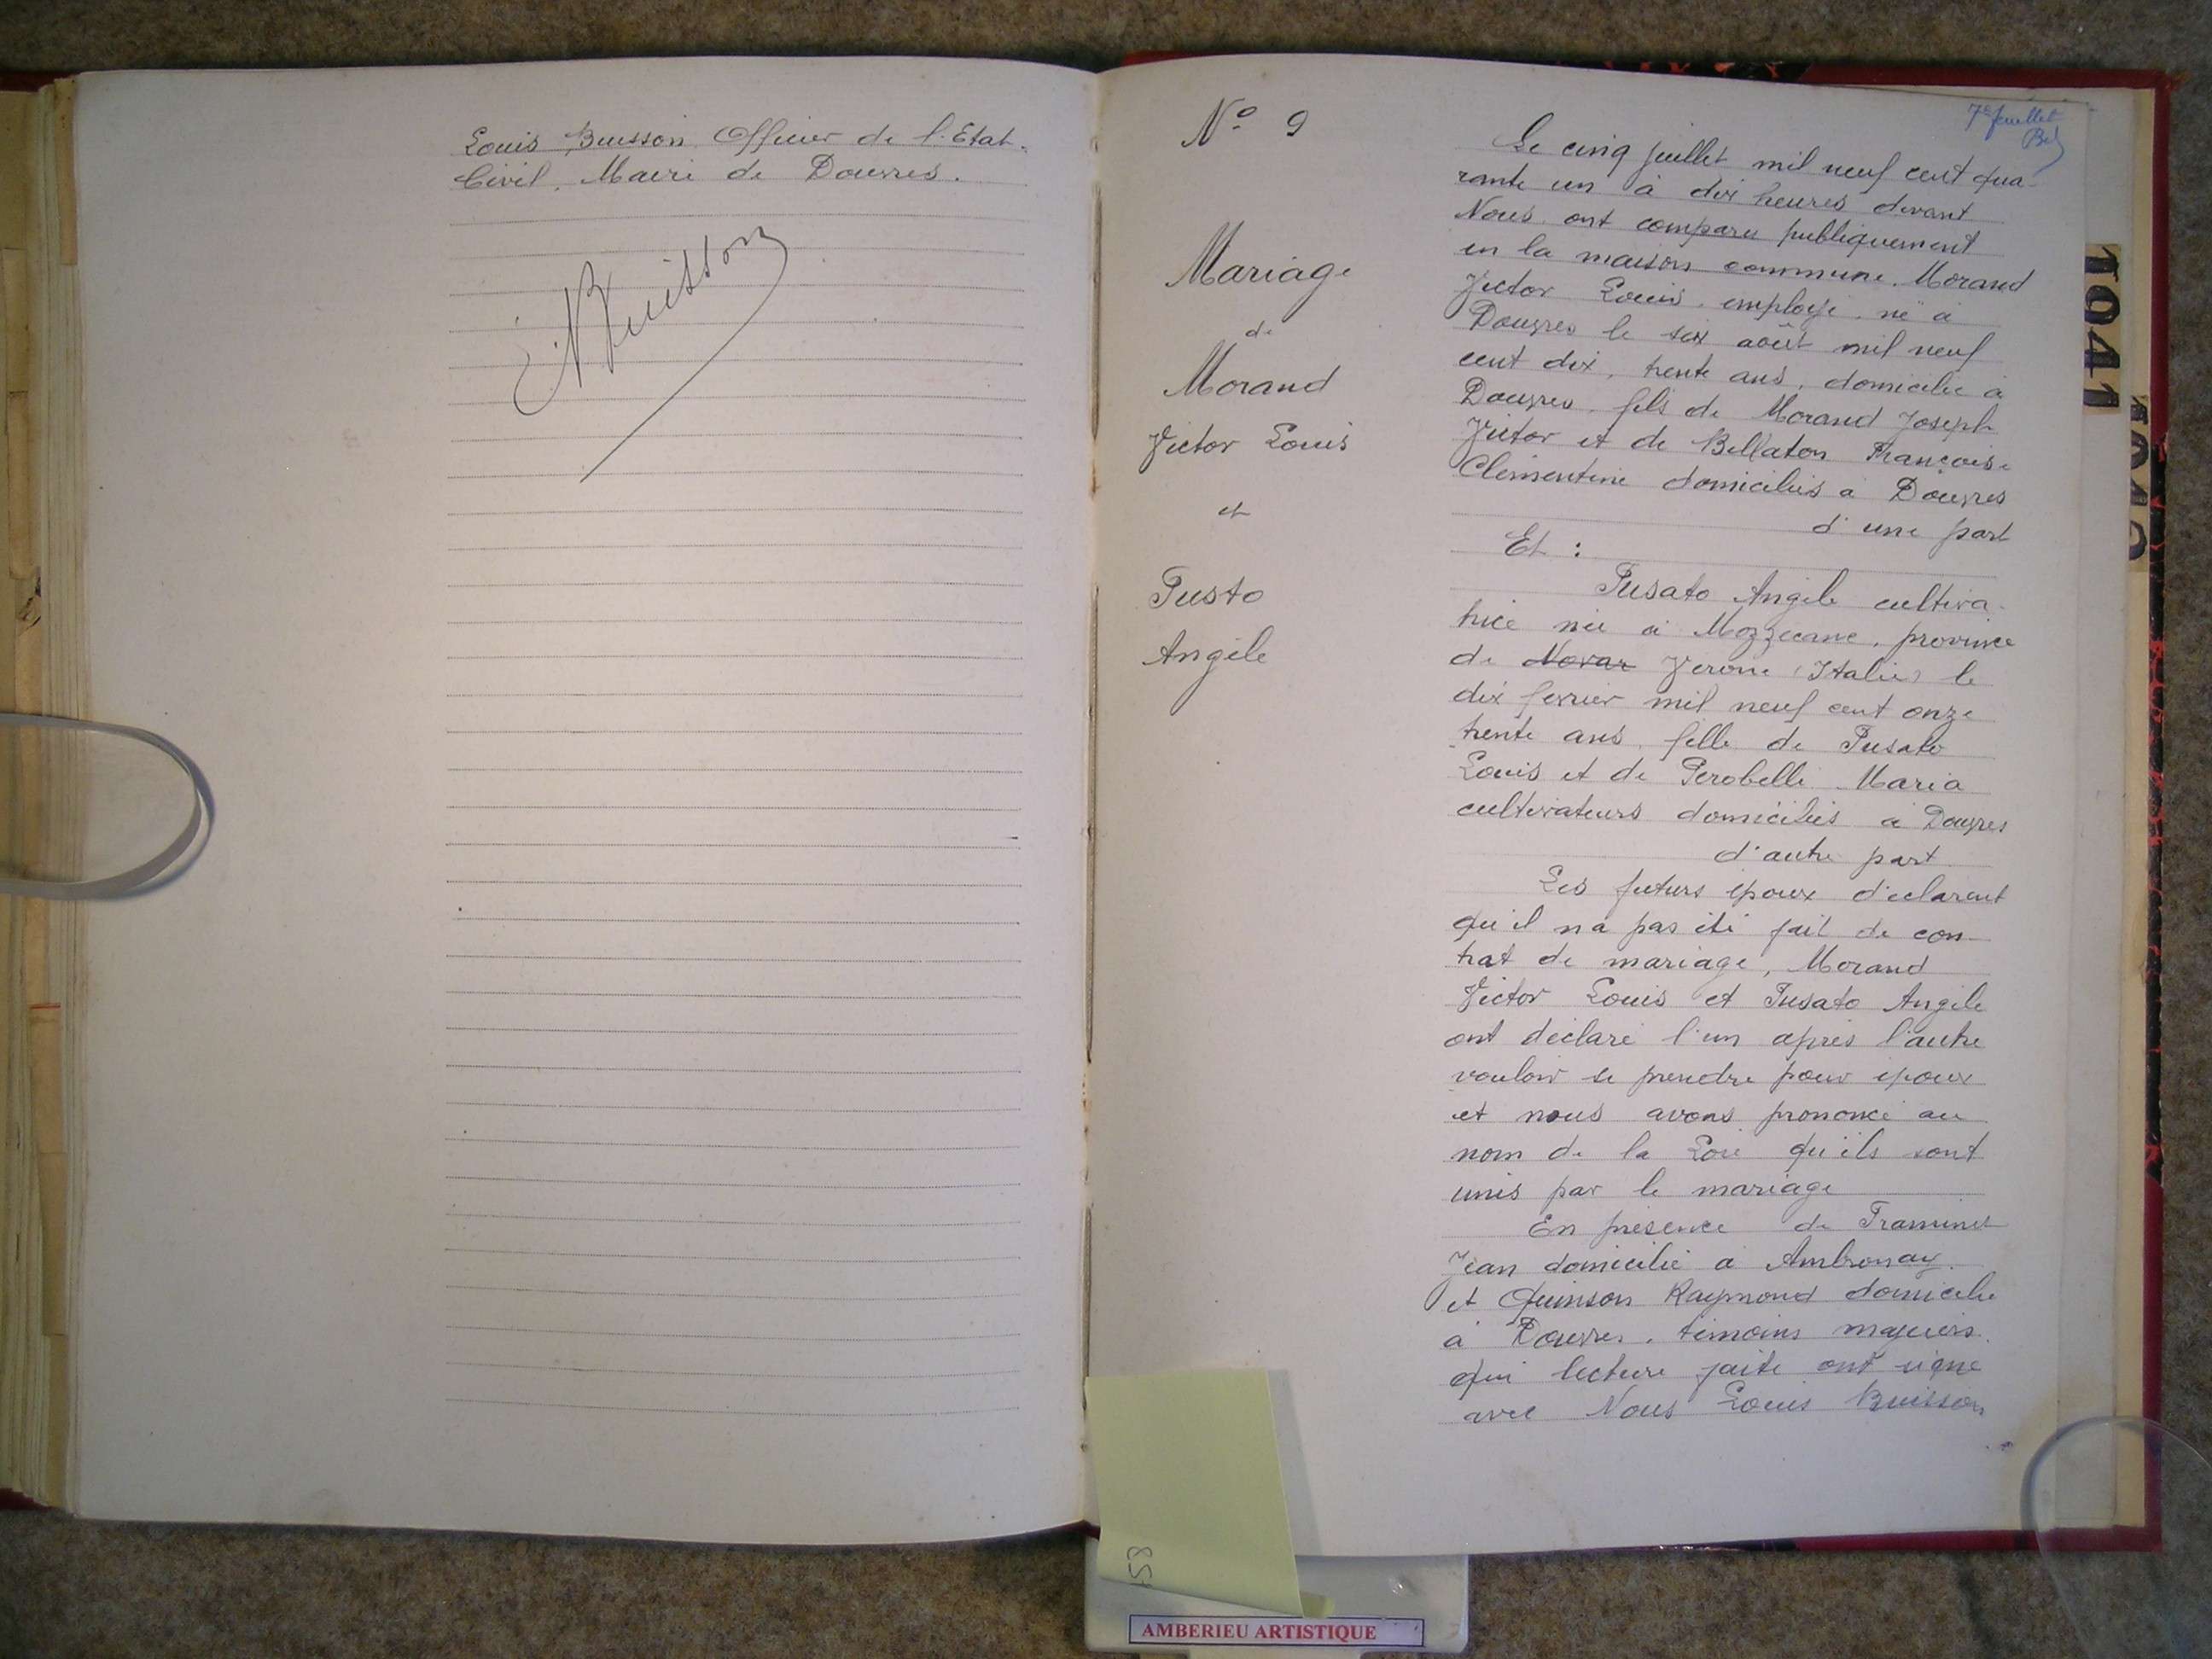 Louis Buisson Officier de l'Etat-
Civil, Maire de Douvres.
Buisson
7e feuillet
N° 9
Mariage
de
Morand
Victor Louis
et
Pusto
Angèle
Le cinq juillet mil neuf cent qua-
rante un à dix heures devant
Nous ont comparu publiquement
en la maison commune. Morand
Victor Louis, employé, né à
Douvres le six août mil neuf
cent dix, trente ans, domicilié à
Douvres, fils de Morand Joseph
Victor et de Bellaton Françoise
Clémentine domiciliés à Douvres
d'une part
Et :
Pusato Angèle cultiva-
trice née à Mozzecane, province
de Novar Verone (Italie) le
dix fevrier mil neuf cent onze
trente ans, fille de Pusato
Louis et de Perobelli Maria
cultivateurs domiciliés à Douvres
d'autre part
Les futurs époux déclarent
qu'il n'a pas été fait de con-
trat de mariage, Morand
Victor Louis et Pusato Angèle
ont déclaré l'un après l'autre
vouloir se prendre pour époux
et nous avons prononcé au
nom de la Loi qu'ils sont
unis par le mariage
En présence de Traminet
Jean domicilié à Ambronay
et Quinson Raymond domicilié
à Douvres, témoins majeurs
qui lecture faite ont signé
avec Nous Louis Buisson
1941
AMBERIEU ARTISTIQUE